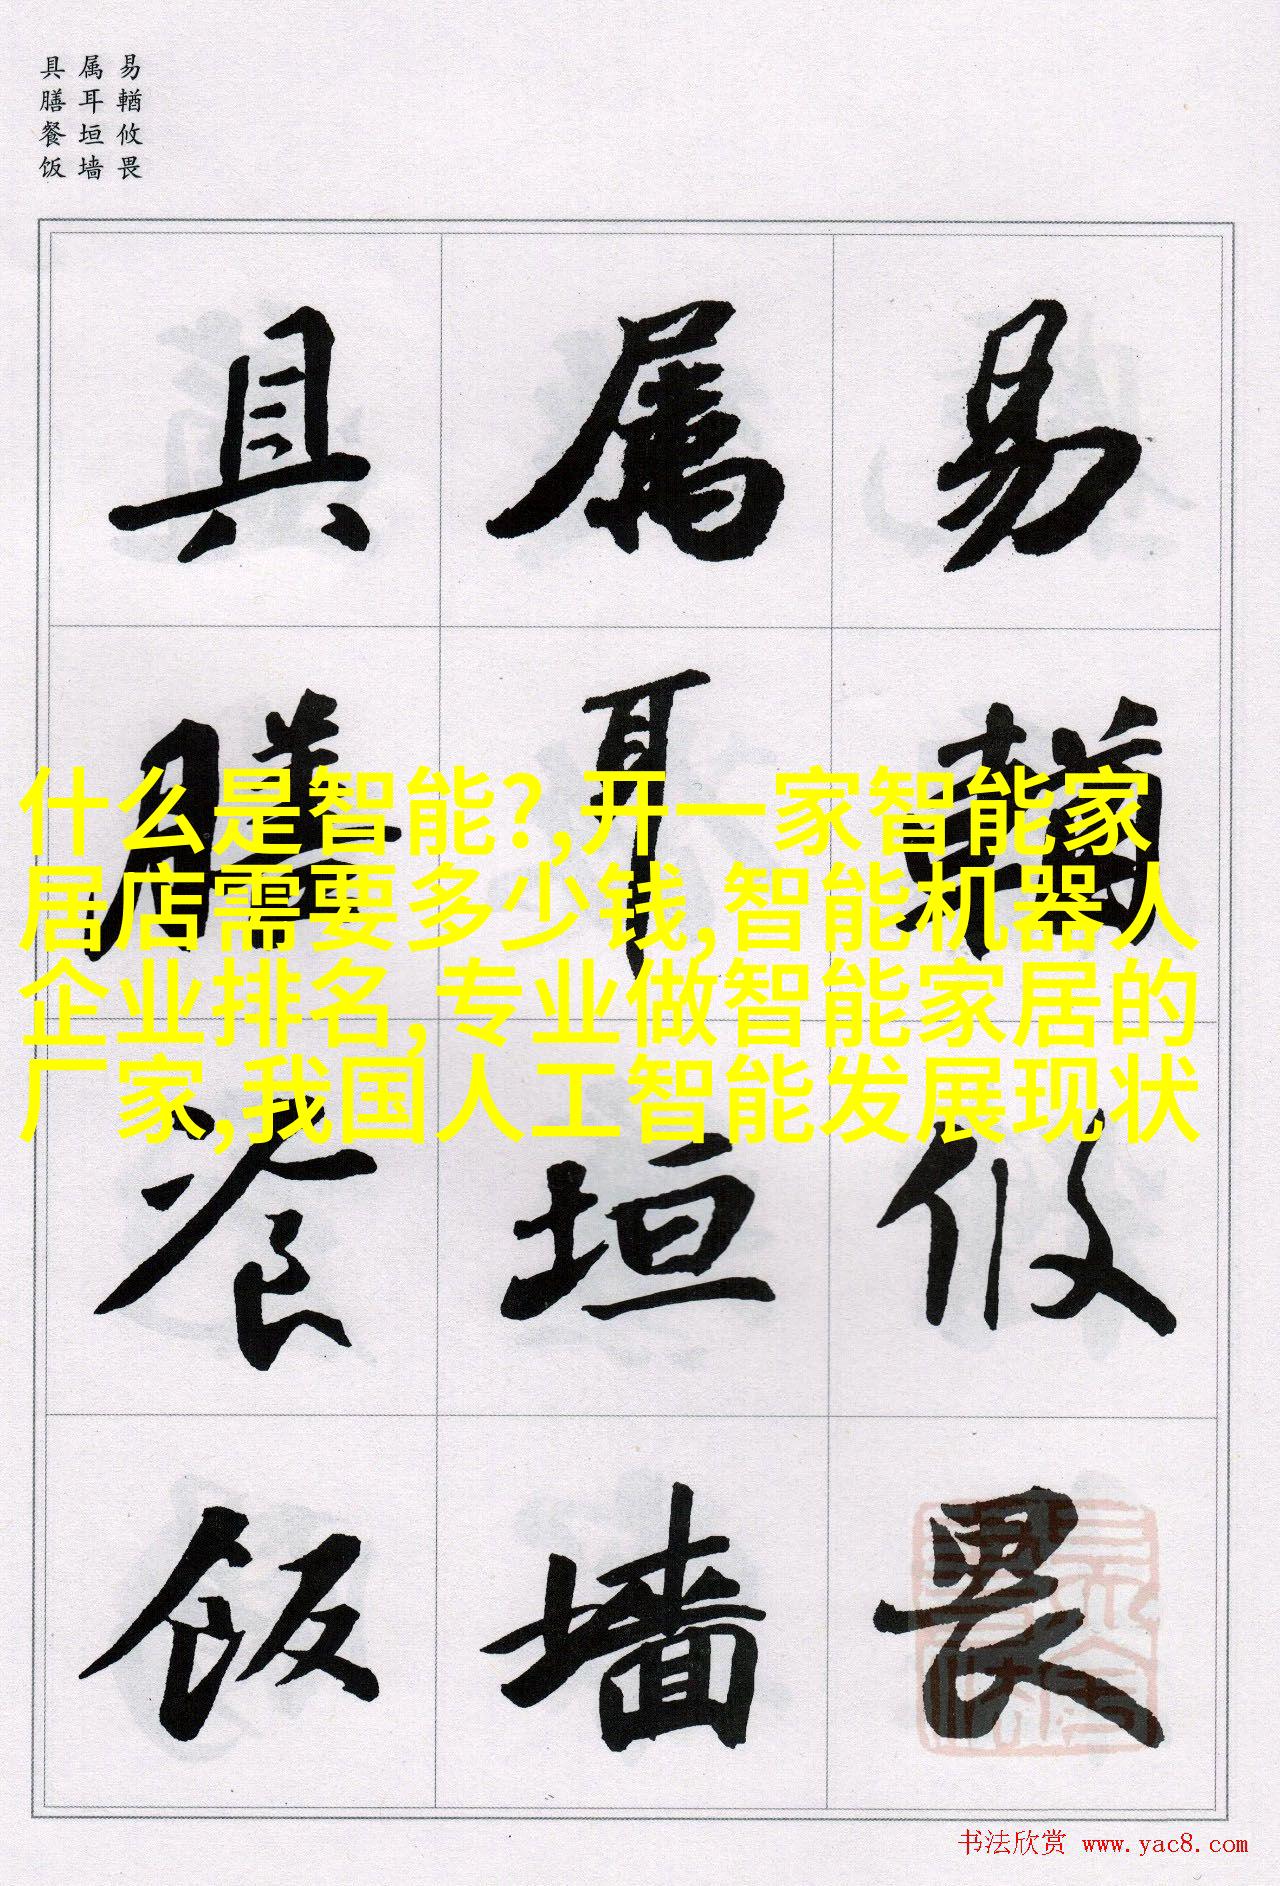 易輶攸畏
属耳垣墙
具膳餐饭
易輶攸畏
属耳垣墙
具膳飡饭
什么是智能?,开一家智能家
居店需要多少钱,智能机器人
企业排名,专业做智能家居的
厂家,我国人工智能发展现状
书法欣赏 www.yac8.com